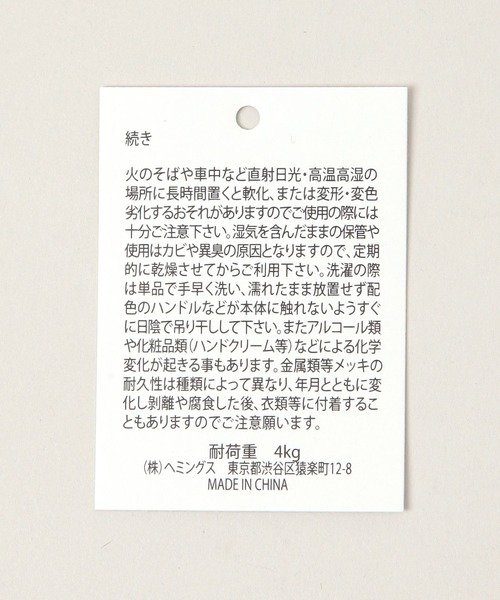 続き
火のそばや車中など直射日光・高温高湿の
場所に長時間置くと軟化、または変形・変色
劣化するおそれがありますのでご使用の際には
十分ご注意下さい。湿気を含んだままの保管や
使用はカビや異臭の原因となりますので、定期
的に乾燥させてからご利用下さい。洗濯の際
は単品で手早く洗い、濡れたまま放置せず配
色のハンドルなどが本体に触れないようすぐ
に日陰で吊り干しして下さい。またアルコール類
や化粧品類（ハンドクリーム等）などによる化学
変化が起きる事もあります。金属類等メッキの
耐久性は種類によって異なり、年月とともに変
化し剥離や腐食した後、衣類等に付着するこ
ともありますのでご注意願います。
耐荷重　4kg
（株）ヘミングス　東京都渋谷区猿楽町12-8
MADE IN CHINA